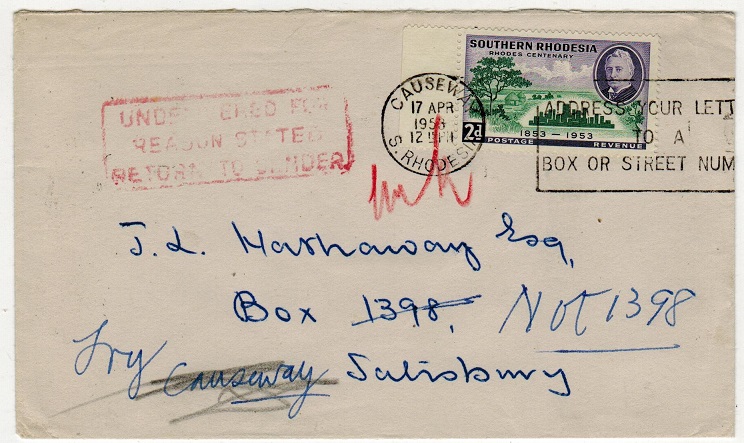 SOUTHERN RHODESIA
RHODES CENTENARY
2d
1853 - 1953
POSTAGE REVENUE
CAUSEWAY
17 APR
12
S. RHODESIA
ADDRESS YOUR LETT
TO A
BOX OR STREET NUM
UNDELIVERED FOR
REASON STATED
RETURN TO SENDER
J. L. Hathaway Esq,
Box 1398, Not 1398
Try Causeway Salisbury